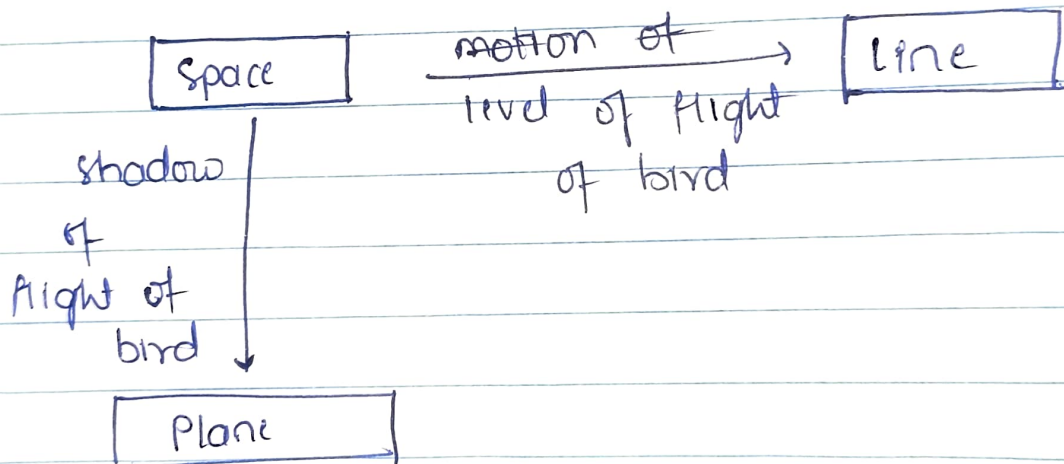 Space
motion of
Line
level of flight
of bird
shadow
of
flight of
bird
Plane